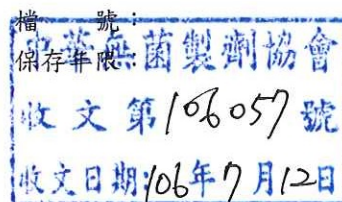 檔　　號：
保存年限：
中華無菌製劑協會
收文第106057號
收文日期:106年7月12日